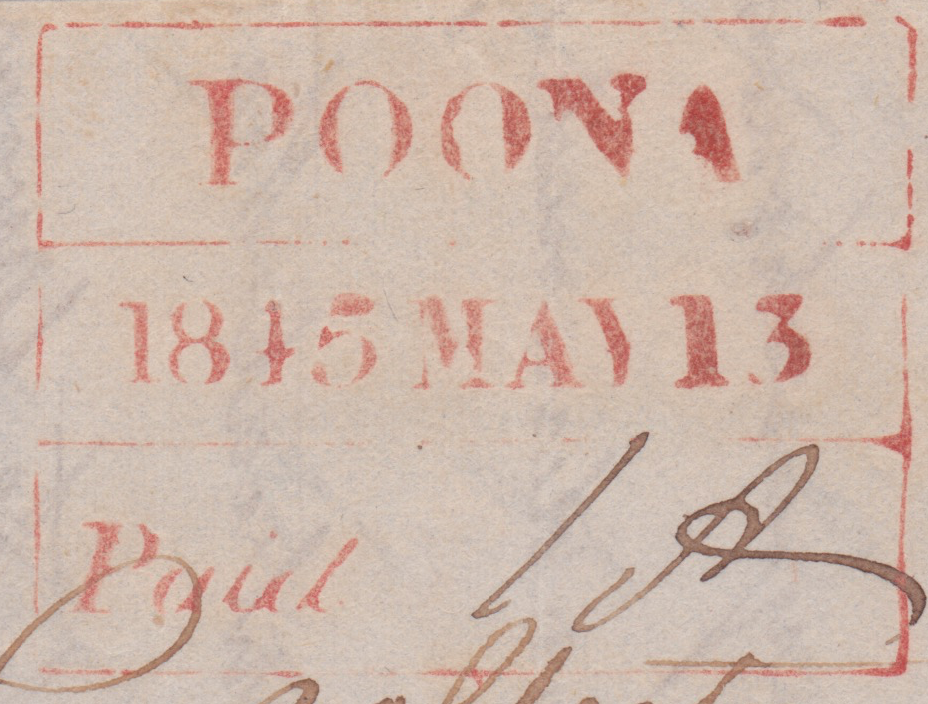 POONA
1845 MAY 13
Paid